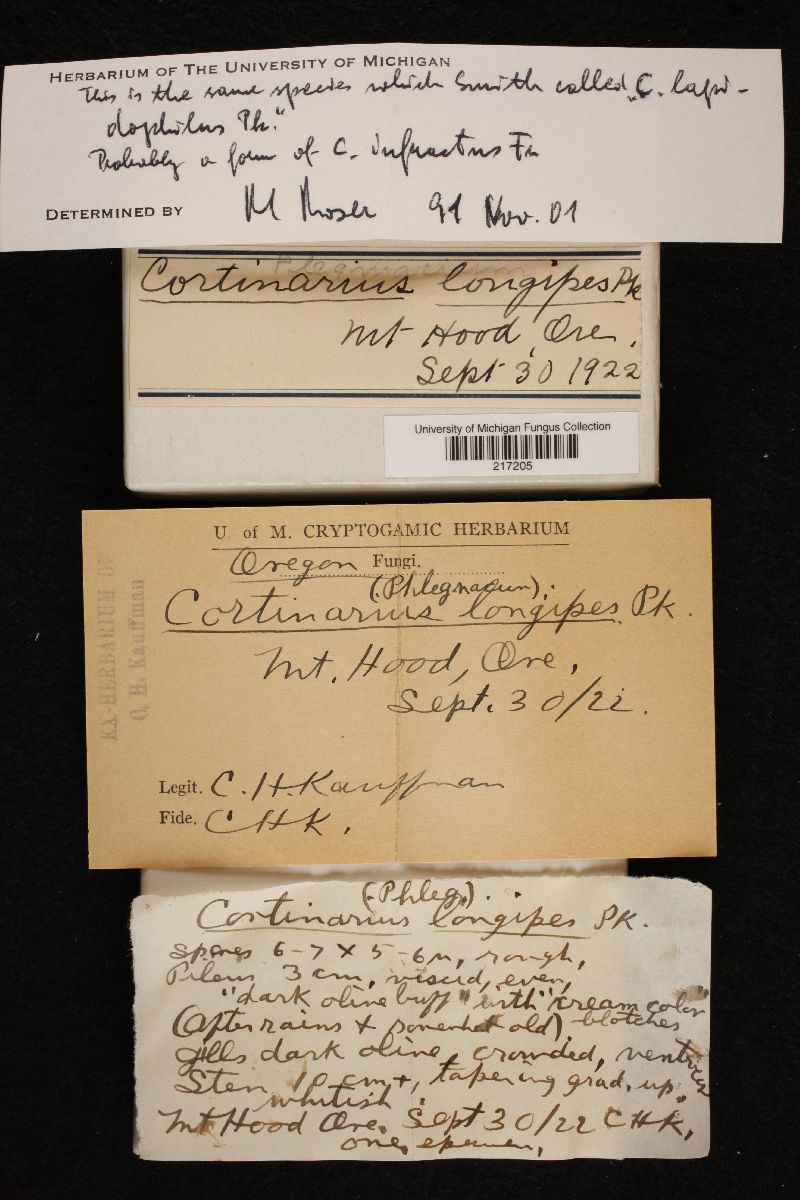 HERBARIUM OF THE UNIVERSITY OF MICHIGAN
This is the same species which Smith called „C. lapi-
dophilus Pk."
Probably a form of C. infractus Fr
DETERMINED BY M Moser 91 Nov. 01
Phlegmacium
Cortinarius longipes Pk
Mt Hood, Ore.
Sept 30 1922
University of Michigan Fungus Collection
217205
U. of M. CRYPTOGAMIC HERBARIUM
Oregon Fungi.
(Phlegmacium).
Cortinarius longipes Pk.
Mt. Hood, Ore.
Sept. 30/22.
EX-HERBARIUM OF
C. H. Kauffman
Legit. C. H. Kauffman
Fide. CHK.
(Phleg.)
Cortinarius longipes Pk.
spores 6-7 x 5-6µ, rough,
Pileus 3 cm, viscid, even,
"dark olive buff" with "cream color"
(after rains + somewhat old) blotches
Gills dark olive, crowded, ventricose
Stem 10 cm+, tapering grad. up,
whitish
Mt Hood Ore. Sept 30/22 CHK,
one specimen,